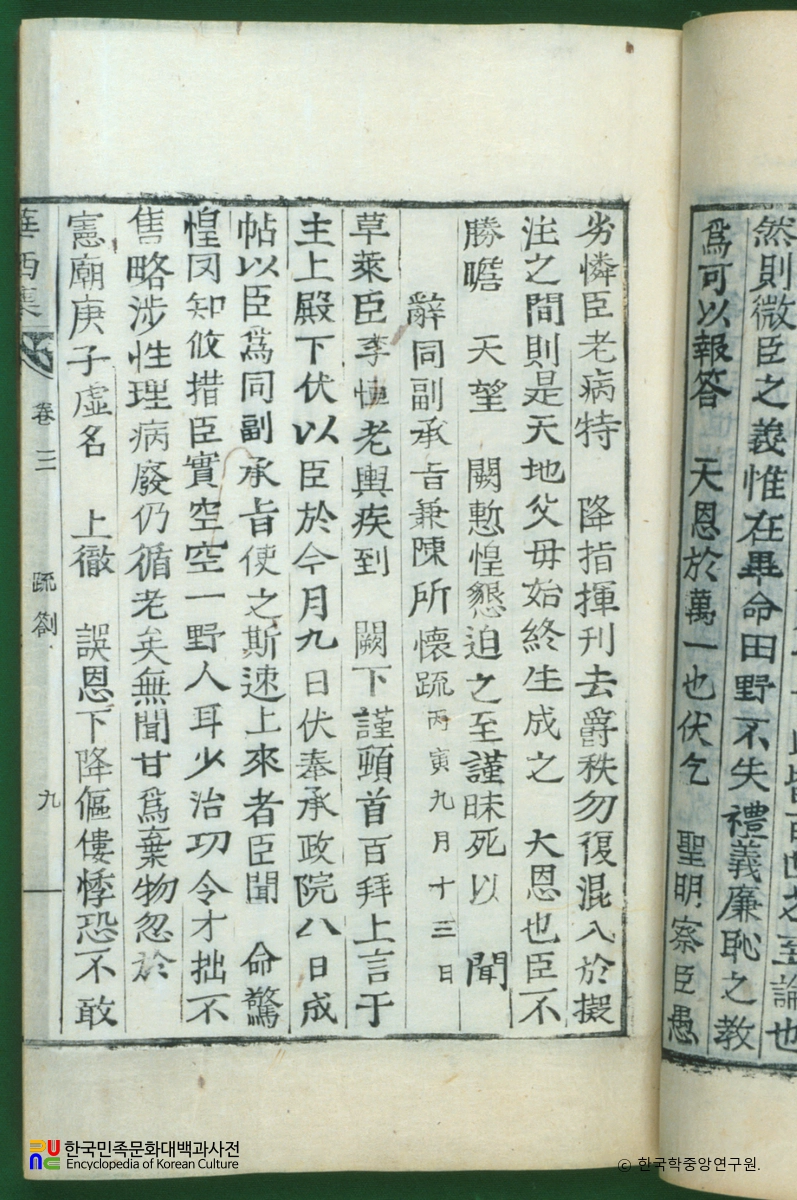 此皆百世之至論也
然則微臣之義惟在畢命田野不失禮義廉恥之教
爲可以報答 天恩於萬一也伏乞 聖明察臣愚
劣憐臣老病特 降指揮刊去爵秩勿復混入於擬
注之間則是天地父母始終生成之 大恩也臣不
勝瞻 天望 闕慙惶懇迫之至謹昧死以 聞
辭同副承旨兼陳所懷疏 丙寅九月十三日
草萊臣李恒老輿疾到 闕下謹頓首百拜上言于
主上殿下伏以臣於今月九日伏奉承政院八日成
帖以臣爲同副承旨使之斯速上來者臣聞 命驚
惶罔知攸措臣實空空一野人耳少治功令才拙不
售略涉性理病廢仍循老矣無聞甘爲棄物忽於
憲廟庚子虛名 上徹 誤恩下降傴僂悸恐不敢
華西集 卷三 疏劄 九
한국민족문화대백과사전
Encyclopedia of Korean Culture
© 한국학중앙연구원.